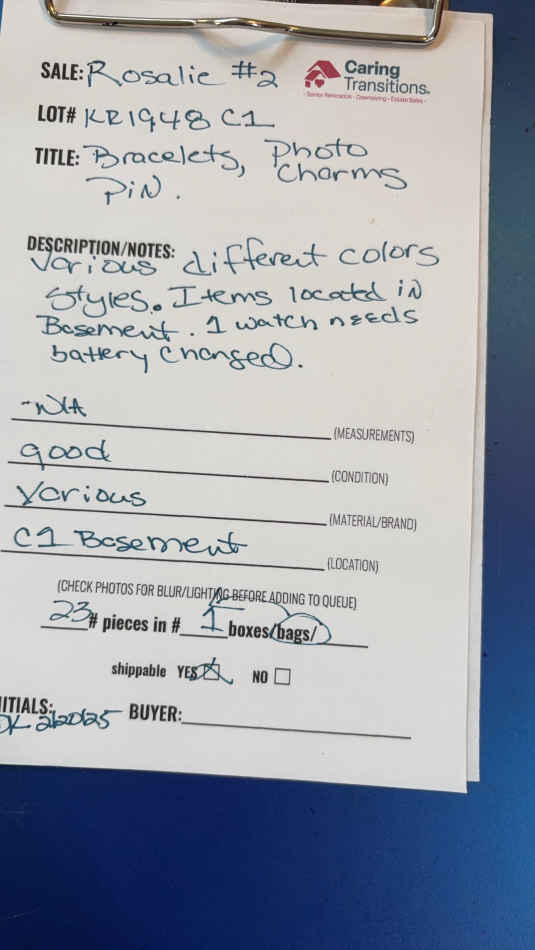 SALE: Rosalie #2
Caring Transitions
- Senior Relocation - Downsizing - Estate Sales -
LOT# KR1948 C1
TITLE: Bracelets, Photo
Charms
Pin.
DESCRIPTION/NOTES:
Various different colors
Styles. Items located in
Basement. 1 watch needs
battery changed.
-N/A
(MEASUREMENTS)
good
(CONDITION)
Various
(MATERIAL/BRAND)
C1 Basement
(LOCATION)
(CHECK PHOTOS FOR BLUR/LIGHTING BEFORE ADDING TO QUEUE)
23# pieces in # 1 boxes/bags/
shippable YES NO
ITIALS: BUYER:
2/20/25